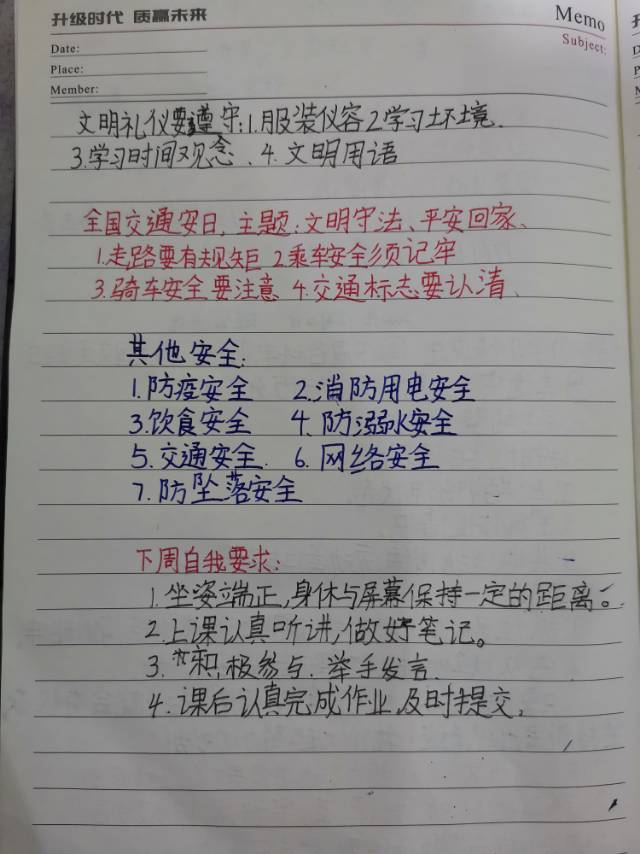 升级时代 质赢未来
Memo
Subject:
Date:
Place:
Member:
文明礼仪要遵守:1.服装仪容2.学习环境.
3.学习时间观念、4.文明用语
全国交通安日,主题:文明守法、平安回家、
1.走路要有规矩 2乘车安全须记牢
3.骑车安全要注意 4.交通标志要认清、
其他安全:
1.防疫安全 2.消防用电安全
3.饮食安全 4.防溺水安全
5.交通安全. 6.网络安全
7.防坠落安全
下周自我要求:
1.坐姿端正,身体与屏幕保持一定的距离。
2.上课认真听讲,做好笔记。
3.积极参与.举手发言.
4.课后认真完成作业,及时提交,